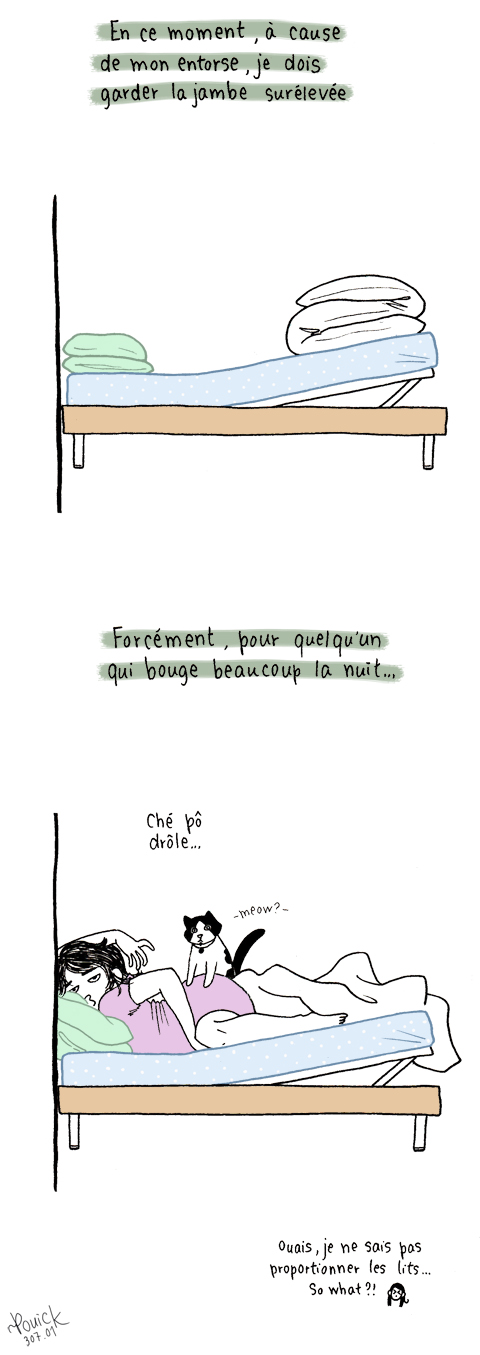 En ce moment, à cause
de mon entorse, je dois
garder la jambe surélevée
Forcément, pour quelqu'un
qui bouge beaucoup la nuit...
Ché pô
drôle...
-meow?-
Ouais, je ne sais pas
proportionner les lits...
So what?!
Pouick
307.01